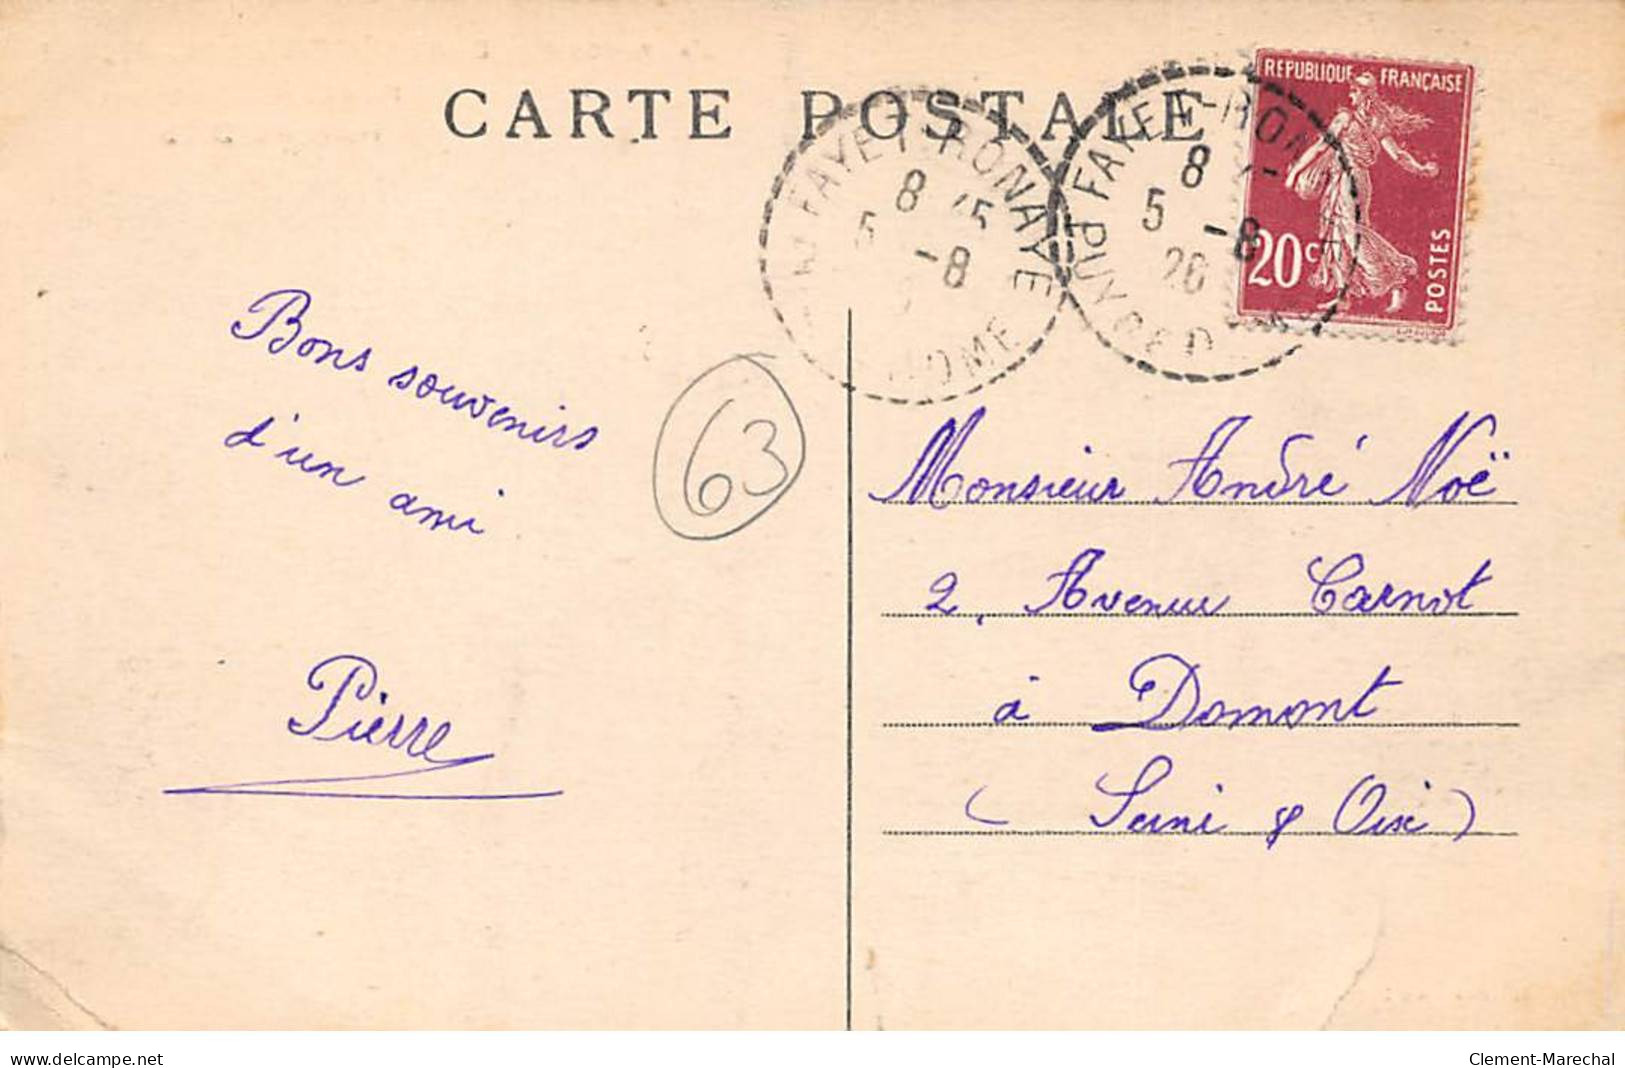 CARTE POSTALE
FAYET-RONAYE
8 45
5 -8
DOME
FAYET-RON
8
5 -8
20
PUY DE D
REPUBLIQUE FRANÇAISE
20c
POSTES
Bons souvenirs
d'un ami
63
Pierre
Monsieur André Noë
2, Avenue Carnot
à Domont
(Seine & Oise)
www.delcampe.net
Clement-Marechal